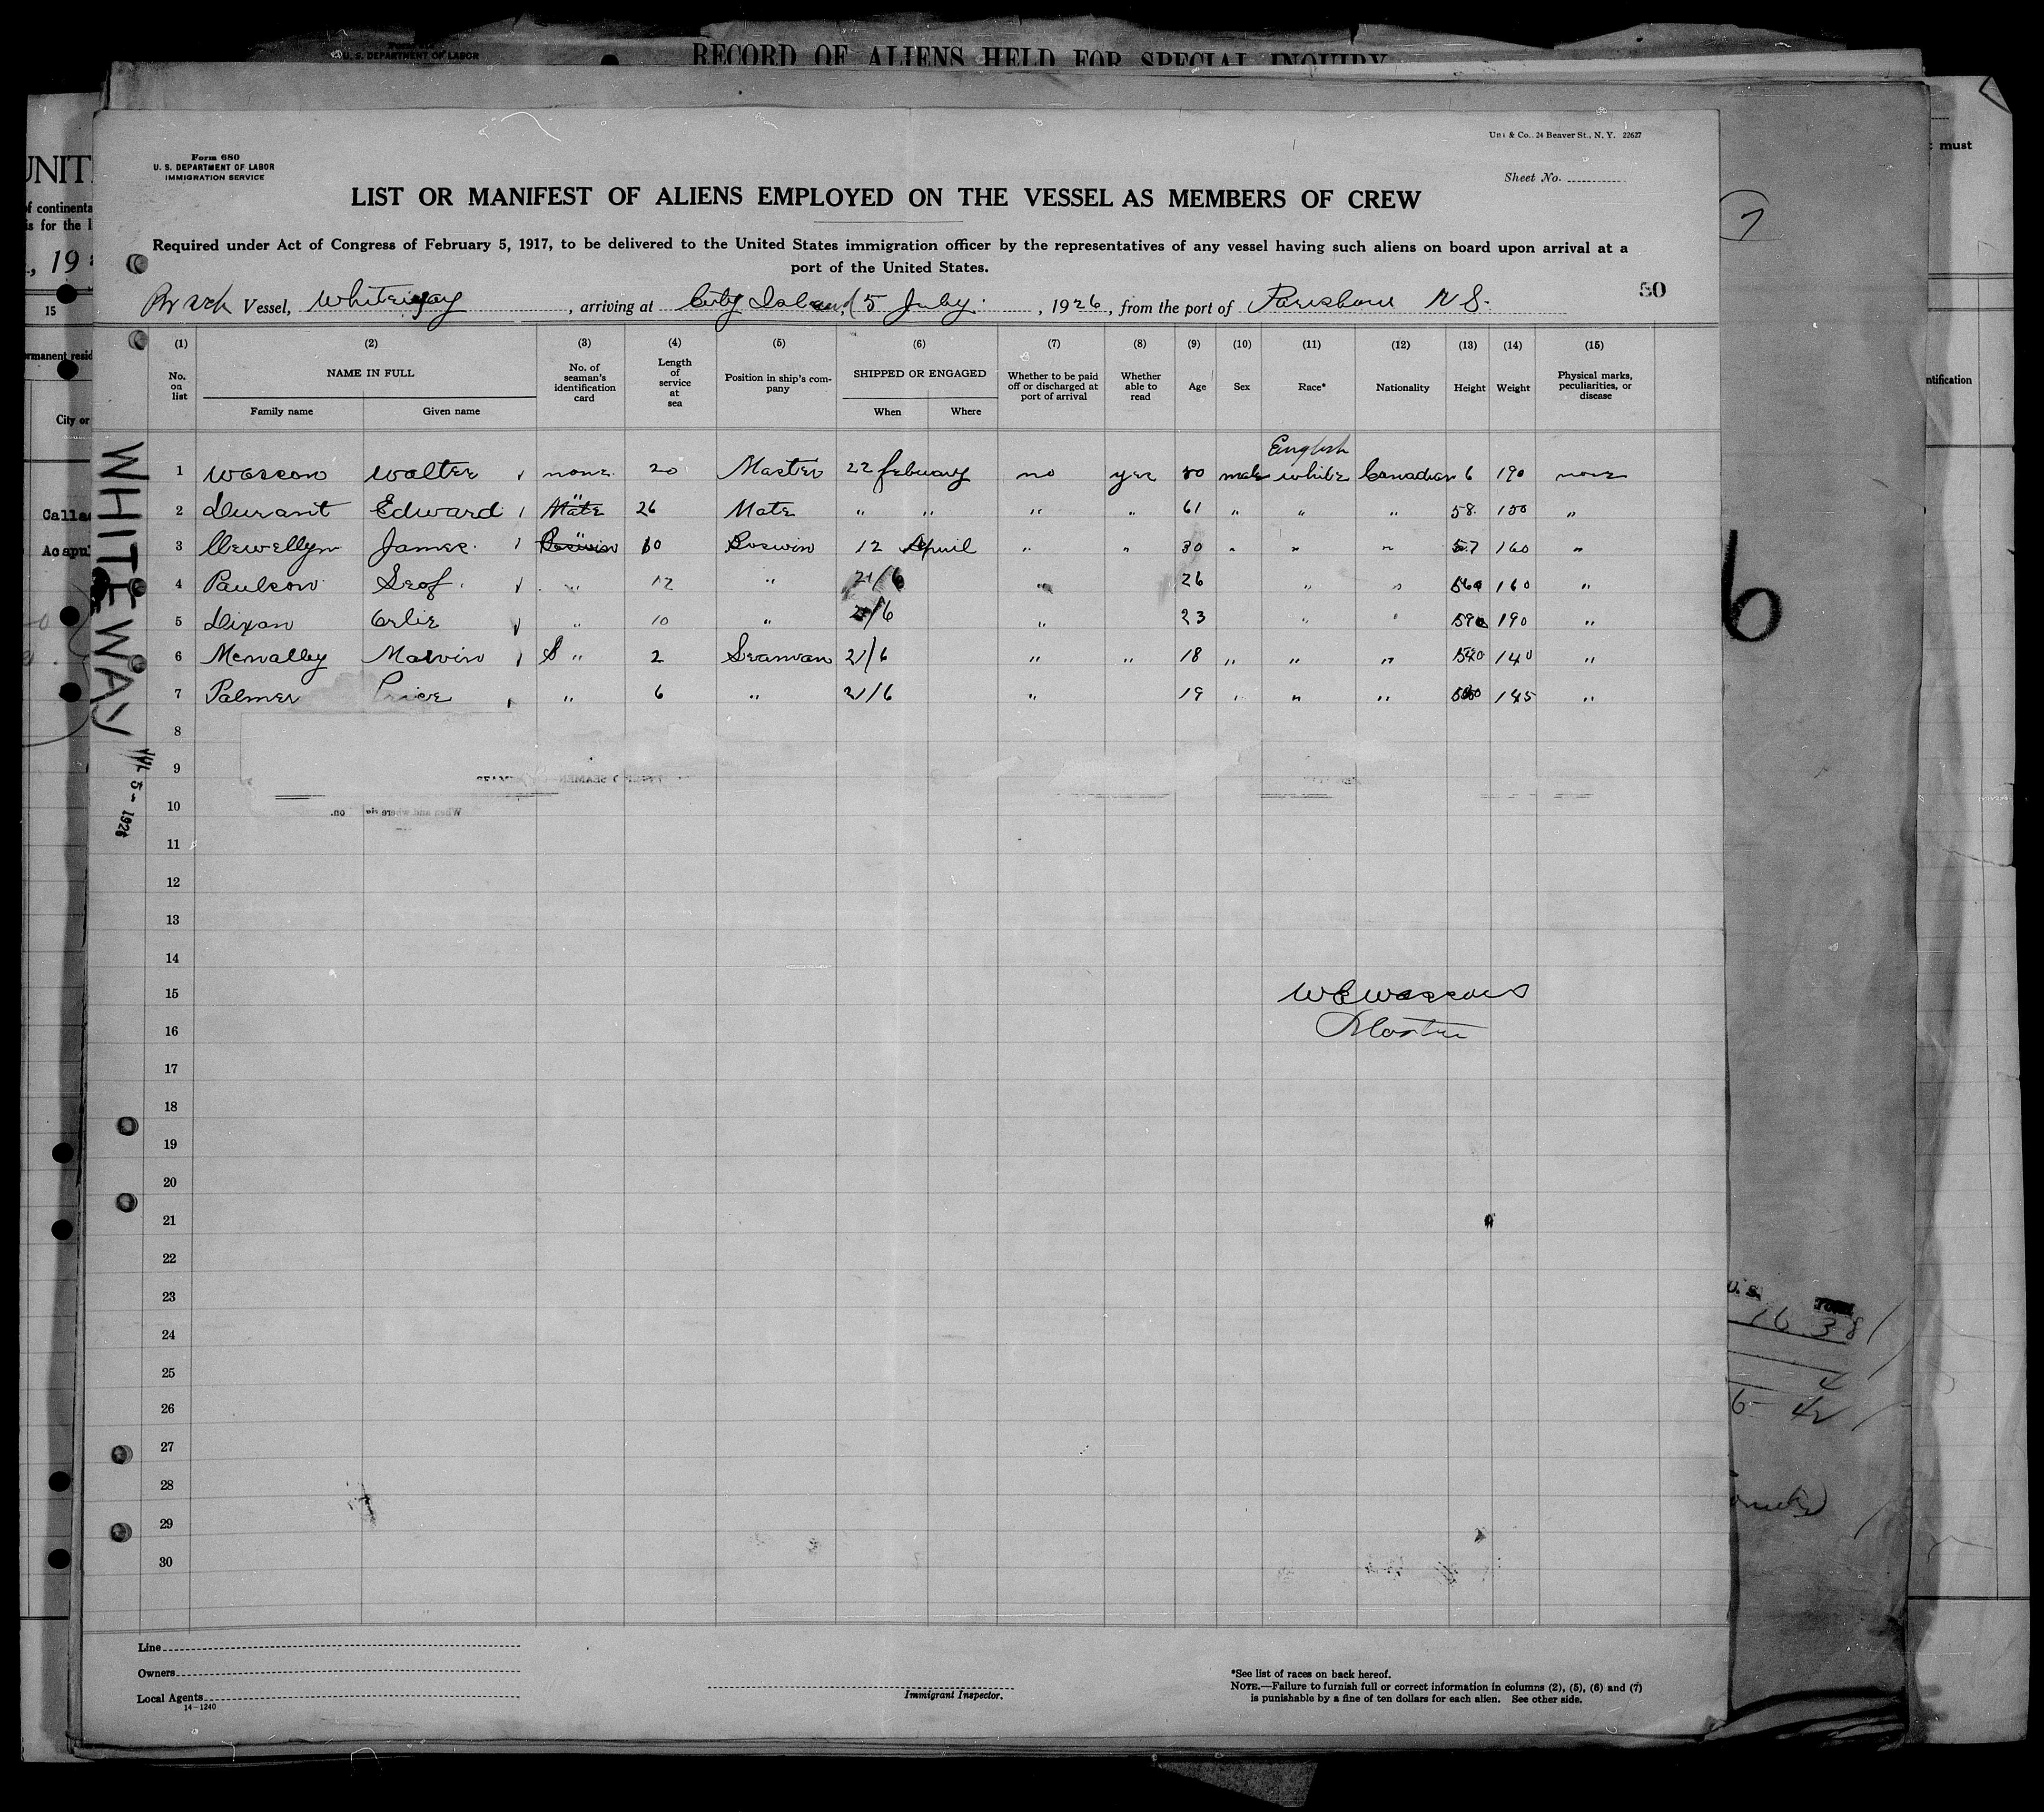 Form
U. S. DEPARTMENT OF LABOR
RECORD OF ALIENS HELD FOR SPECIAL INQUIRY
& Co., 24 Beaver St., N. Y. 22627
Form 680
U. S. DEPARTMENT OF LABOR
IMMIGRATION SERVICE
Sheet No.
LIST OR MANIFEST OF ALIENS EMPLOYED ON THE VESSEL AS MEMBERS OF CREW
Required under Act of Congress of February 5, 1917, to be delivered to the United States immigration officer by the representatives of any vessel having such aliens on board upon arrival at a
port of the United States.
50
Vessel, Whiteway, arriving at City Island, 5 July, 1926, from the port of N S.
(1) (2) (3) (4) (5) (6) (7) (8) (9) (10) (11) (12) (13) (14) (15)
No. on list NAME IN FULL No. of seaman's identification card Length of service at sea Position in ship's company SHIPPED OR ENGAGED Whether to be paid off or discharged at port of arrival Whether able to read Age Sex Race* Nationality Height Weight Physical marks, peculiarities, or disease
Family name Given name When Where
English
1 Wasson Walter none 20 Master 22 febuary no yes 50 male white Canadian 6 190 none
2 Durant Edward Mate 26 Mate " " " " 61 " " " 58 150 "
3 Llewellyn James 10 Boswin 12 April " " 30 " " " 57 160 "
4 Paulson " 12 " 21/6 " 26 " " 160 "
5 Dixon " 10 " /6 " 23 " " 190 "
6 Mcnalley Marvin " 2 Seaman 21/6 " " 18 " " " 140 "
7 Palmer Price " 6 " 21/6 " 19 " " " 145 "
8
9
10
11
12
13
14
15 W E Wasson
16 Master
17
18
19
20
21
22
23
24
25
26
27
28
29
30
WHITEWAY
5 - 1926
Line
Owners
Local Agents
14-1240
Immigrant Inspector.
*See list of races on back hereof.
NOTE.—Failure to furnish full or correct information in columns (2), (5), (6) and (7)
is punishable by a fine of ten dollars for each alien. See other side.